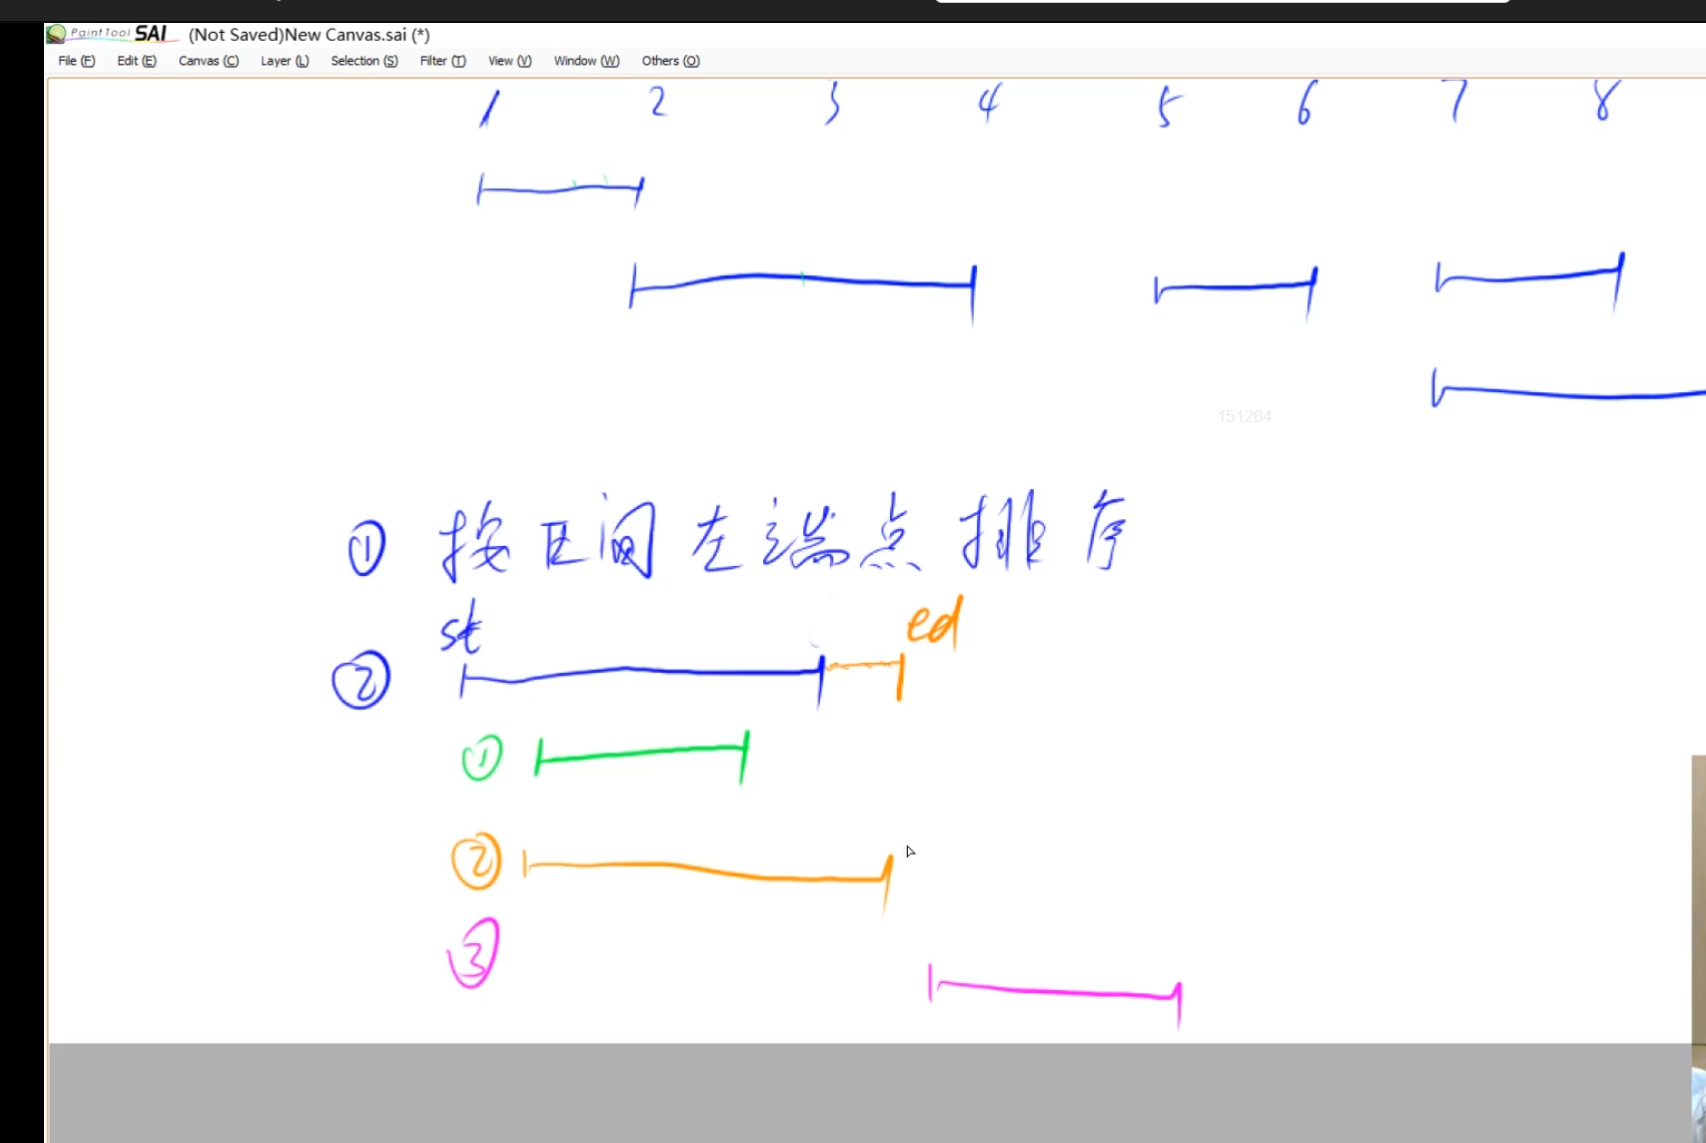 PaintTool SAI (Not Saved)New Canvas.sai (*)
File (F) Edit (E) Canvas (C) Layer (L) Selection (S) Filter (T) View (V) Window (W) Others (O)
1 2 3 4 5 6 7 8
151264
① 按区间左端点排序
st ed
②
①
②
③